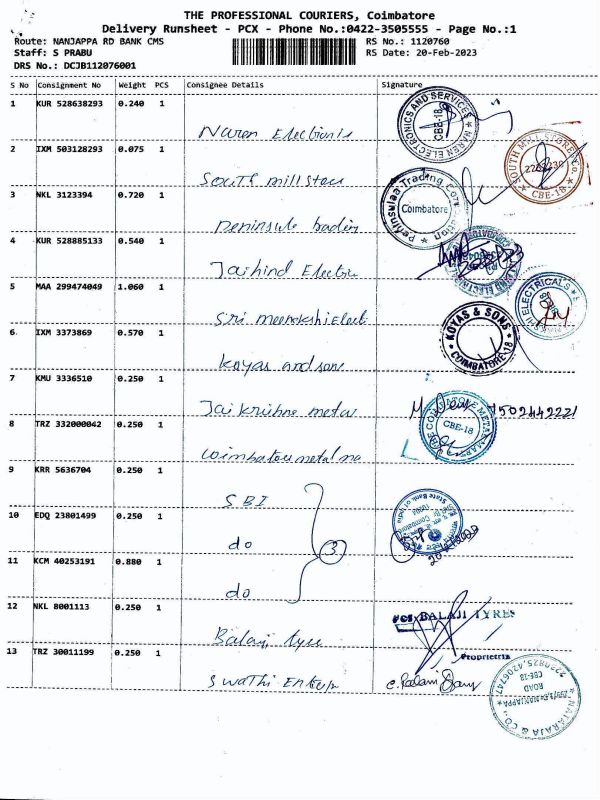 THE PROFESSIONAL COURIERS, Coimbatore
Delivery Runsheet - PCX - Phone No.:0422-3505555 - Page No.:1
Route: NANJAPPA RD BANK CMS
RS No.: 1120760
Staff: S PRABU
RS Date: 20-Feb-2023
DRS No.: DCJB112076001
S No Consignment No Weight PCS Consignee Details Signature
1 KUR 528638293 0.240 1
Naren Electronis
NAREN ELECTRONICS AND SERVICES CBE-18
2 IXM 503128293 0.075 1
South mill stou
SOUTH MILL STORE CBE-18
3 NKL 3123394 0.720 1
Peninsule
Peninsulaa Trading Corporation Coimbatore
4 KUR 528885133 0.540 1
Jaihind Electri
5 MAA 299474049 1.060 1
Sri meenakshi Elect
ELECTRICALS
6 IXM 3373869 0.570 1
Koyas and son
KOYAS & SONS COIMBATORE-18
7 KMU 3336510 0.250 1
Jai Krishna metal
1502442221
8 TRZ 332000042 0.250 1
Coimbatore metal ma
COIMBATORE METAL MART CBE-18
9 KRR 5636704 0.250 1
SBI
State Bank of India
10 EDQ 23801499 0.250 1
do
3
11 KCM 40253191 0.880 1
do
12 NKL 8001113 0.250 1
Balaji tyre
FOR BALAJI TYRES
Proprietrix
13 TRZ 30011199 0.250 1
Swathi Enterp
NATARAJA & CO.
NANJAPPA ROAD
CBE-18